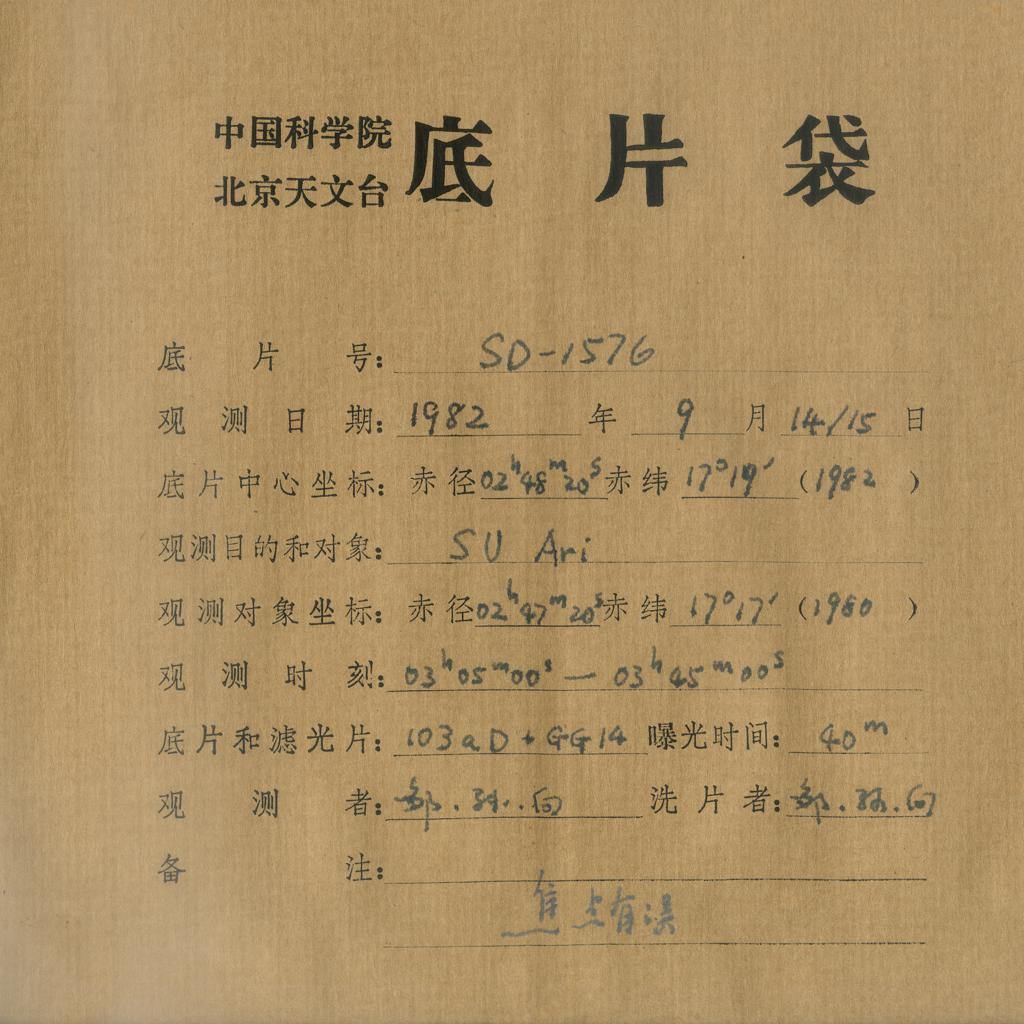 中国科学院
北京天文台 底片袋
底片号: SD-1576
观测日期: 1982 年 9 月 14/15 日
底片中心坐标: 赤径 02ʰ48ᵐ20ˢ 赤纬 17°19′ (1982 )
观测目的和对象: SU Ari
观测对象坐标: 赤径 02ʰ47ᵐ20ˢ 赤纬 17°17′ (1980 )
观测时刻: 03ʰ05ᵐ00ˢ — 03ʰ45ᵐ00ˢ
底片和滤光片: 103aD+GG14 曝光时间: 40ᵐ
观测者: 邹.孙.向 洗片者: 邹.孙.向
备注:
焦点有误